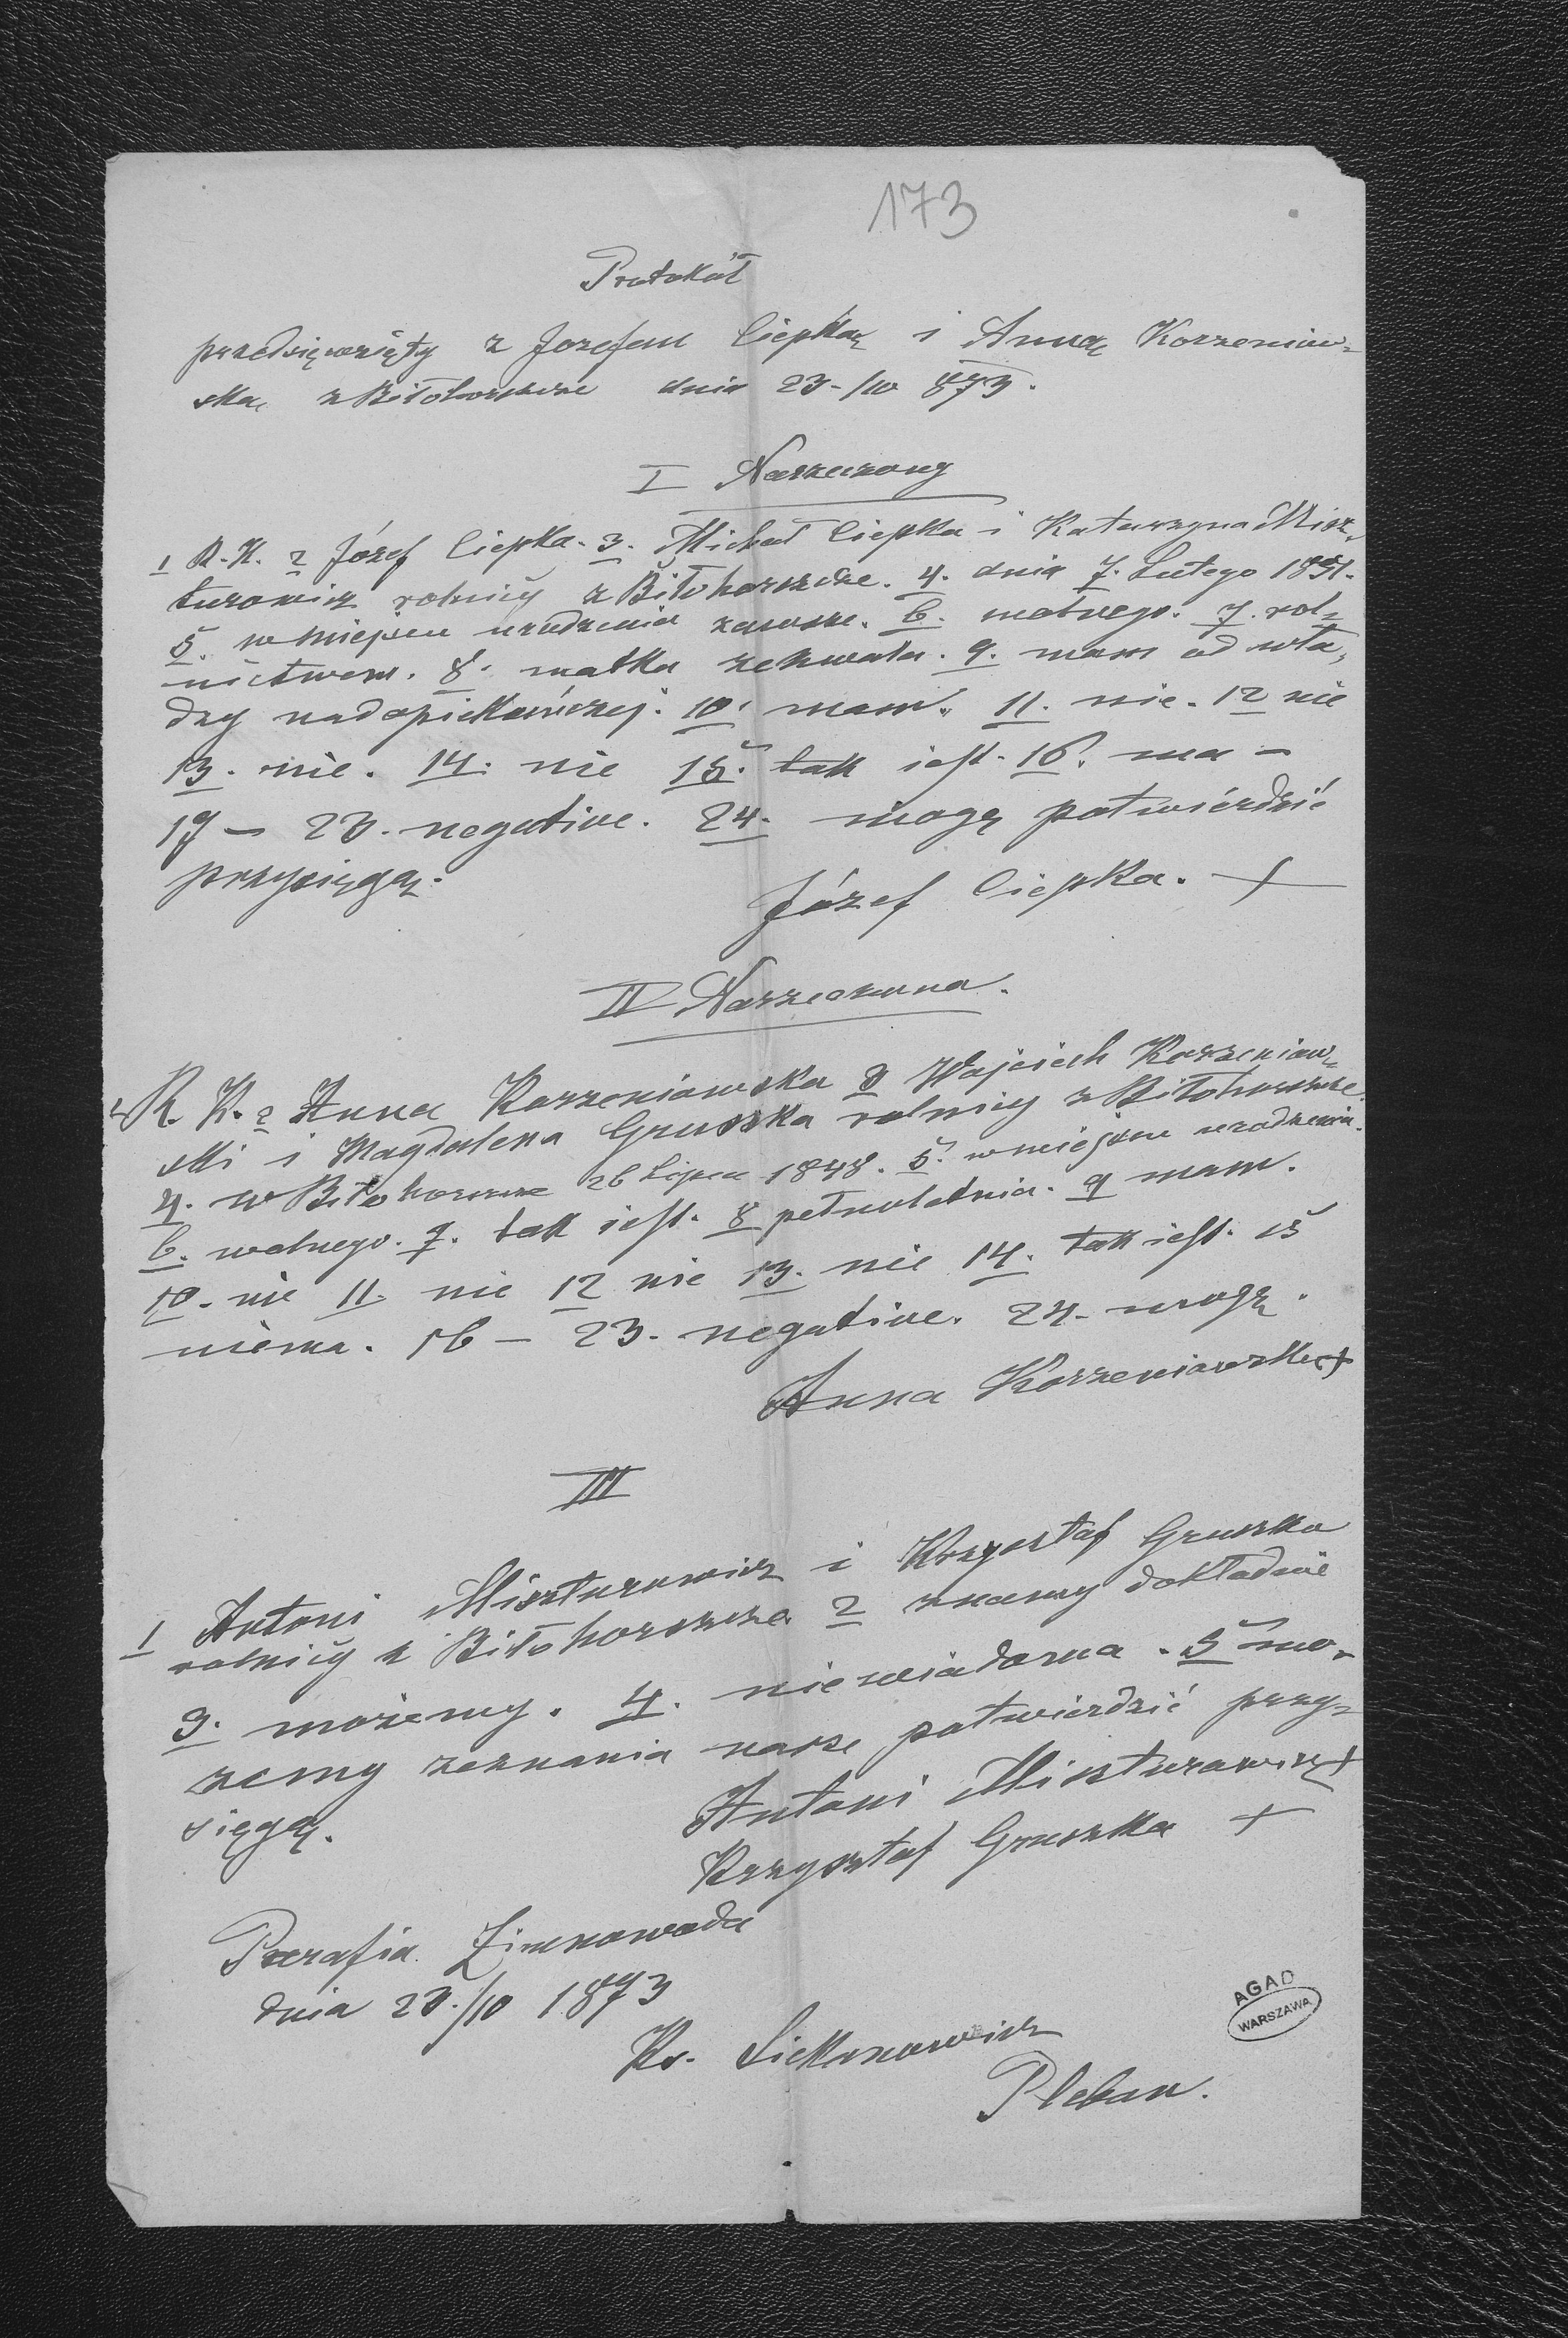 173
Protokół
przedsięwzięty z Jozefem Ciepką i Anną Korzeniow-
ską z Biłohorszcze dnia 23-/10 873.
I Narzeczony
1 R. K. 2 Józef Ciepka. 3. Michał Ciepka i Katarzyna Misz-
turowicz rolnicy z Biłohorszcze. 4. dnia 7. Lutego 1851.
5. w miejscu urodzenia zawsze. 6. wolnego. 7. rol-
nictwem. 8. matka zezwala. 9. mam od wła-
dzy nadopiekuńczej. 10. mam. 11. nie. 12 nie
13. nie. 14. nie 15. tak jest. 16. ma -
17 - 23. negative. 24. mogę potwierdzić
przysięgą.
Józef Ciepka. +
II Narzeczona.
1 R. K. 2 Anna Korzeniowska 3 Wojciech Korzeniow-
ski i Magdalena Gruszka rolnicy z Biłohorszcze.
4. w Biłohorszcze 26 Lipca 1848. 5. w miejscu urodzenia.
6. wolnego. 7. tak jest. 8 pełnoletnia. 9 mam.
10. nie 11. nie 12 nie 13. nie 14. tak jest. 15
niema. 16 - 23. negative. 24. mogę.
Anna Korzeniowska +
III
1 Antoni Miszturowicz i Krzysztof Gruszka
rolnicy z Biłohorszcze. 2 znamy dokładnie
3. możemy. 4. niewiadoma. 5 mo-
żemy zeznania nasze potwierdzić przy-
sięgą.
Antoni Miszturowicz +
Krzysztof Gruszka +
Parafia Zimnawoda
dnia 23./10 1873
Ks. Siekanowicz
Pleban.
AGAD
WARSZAWA